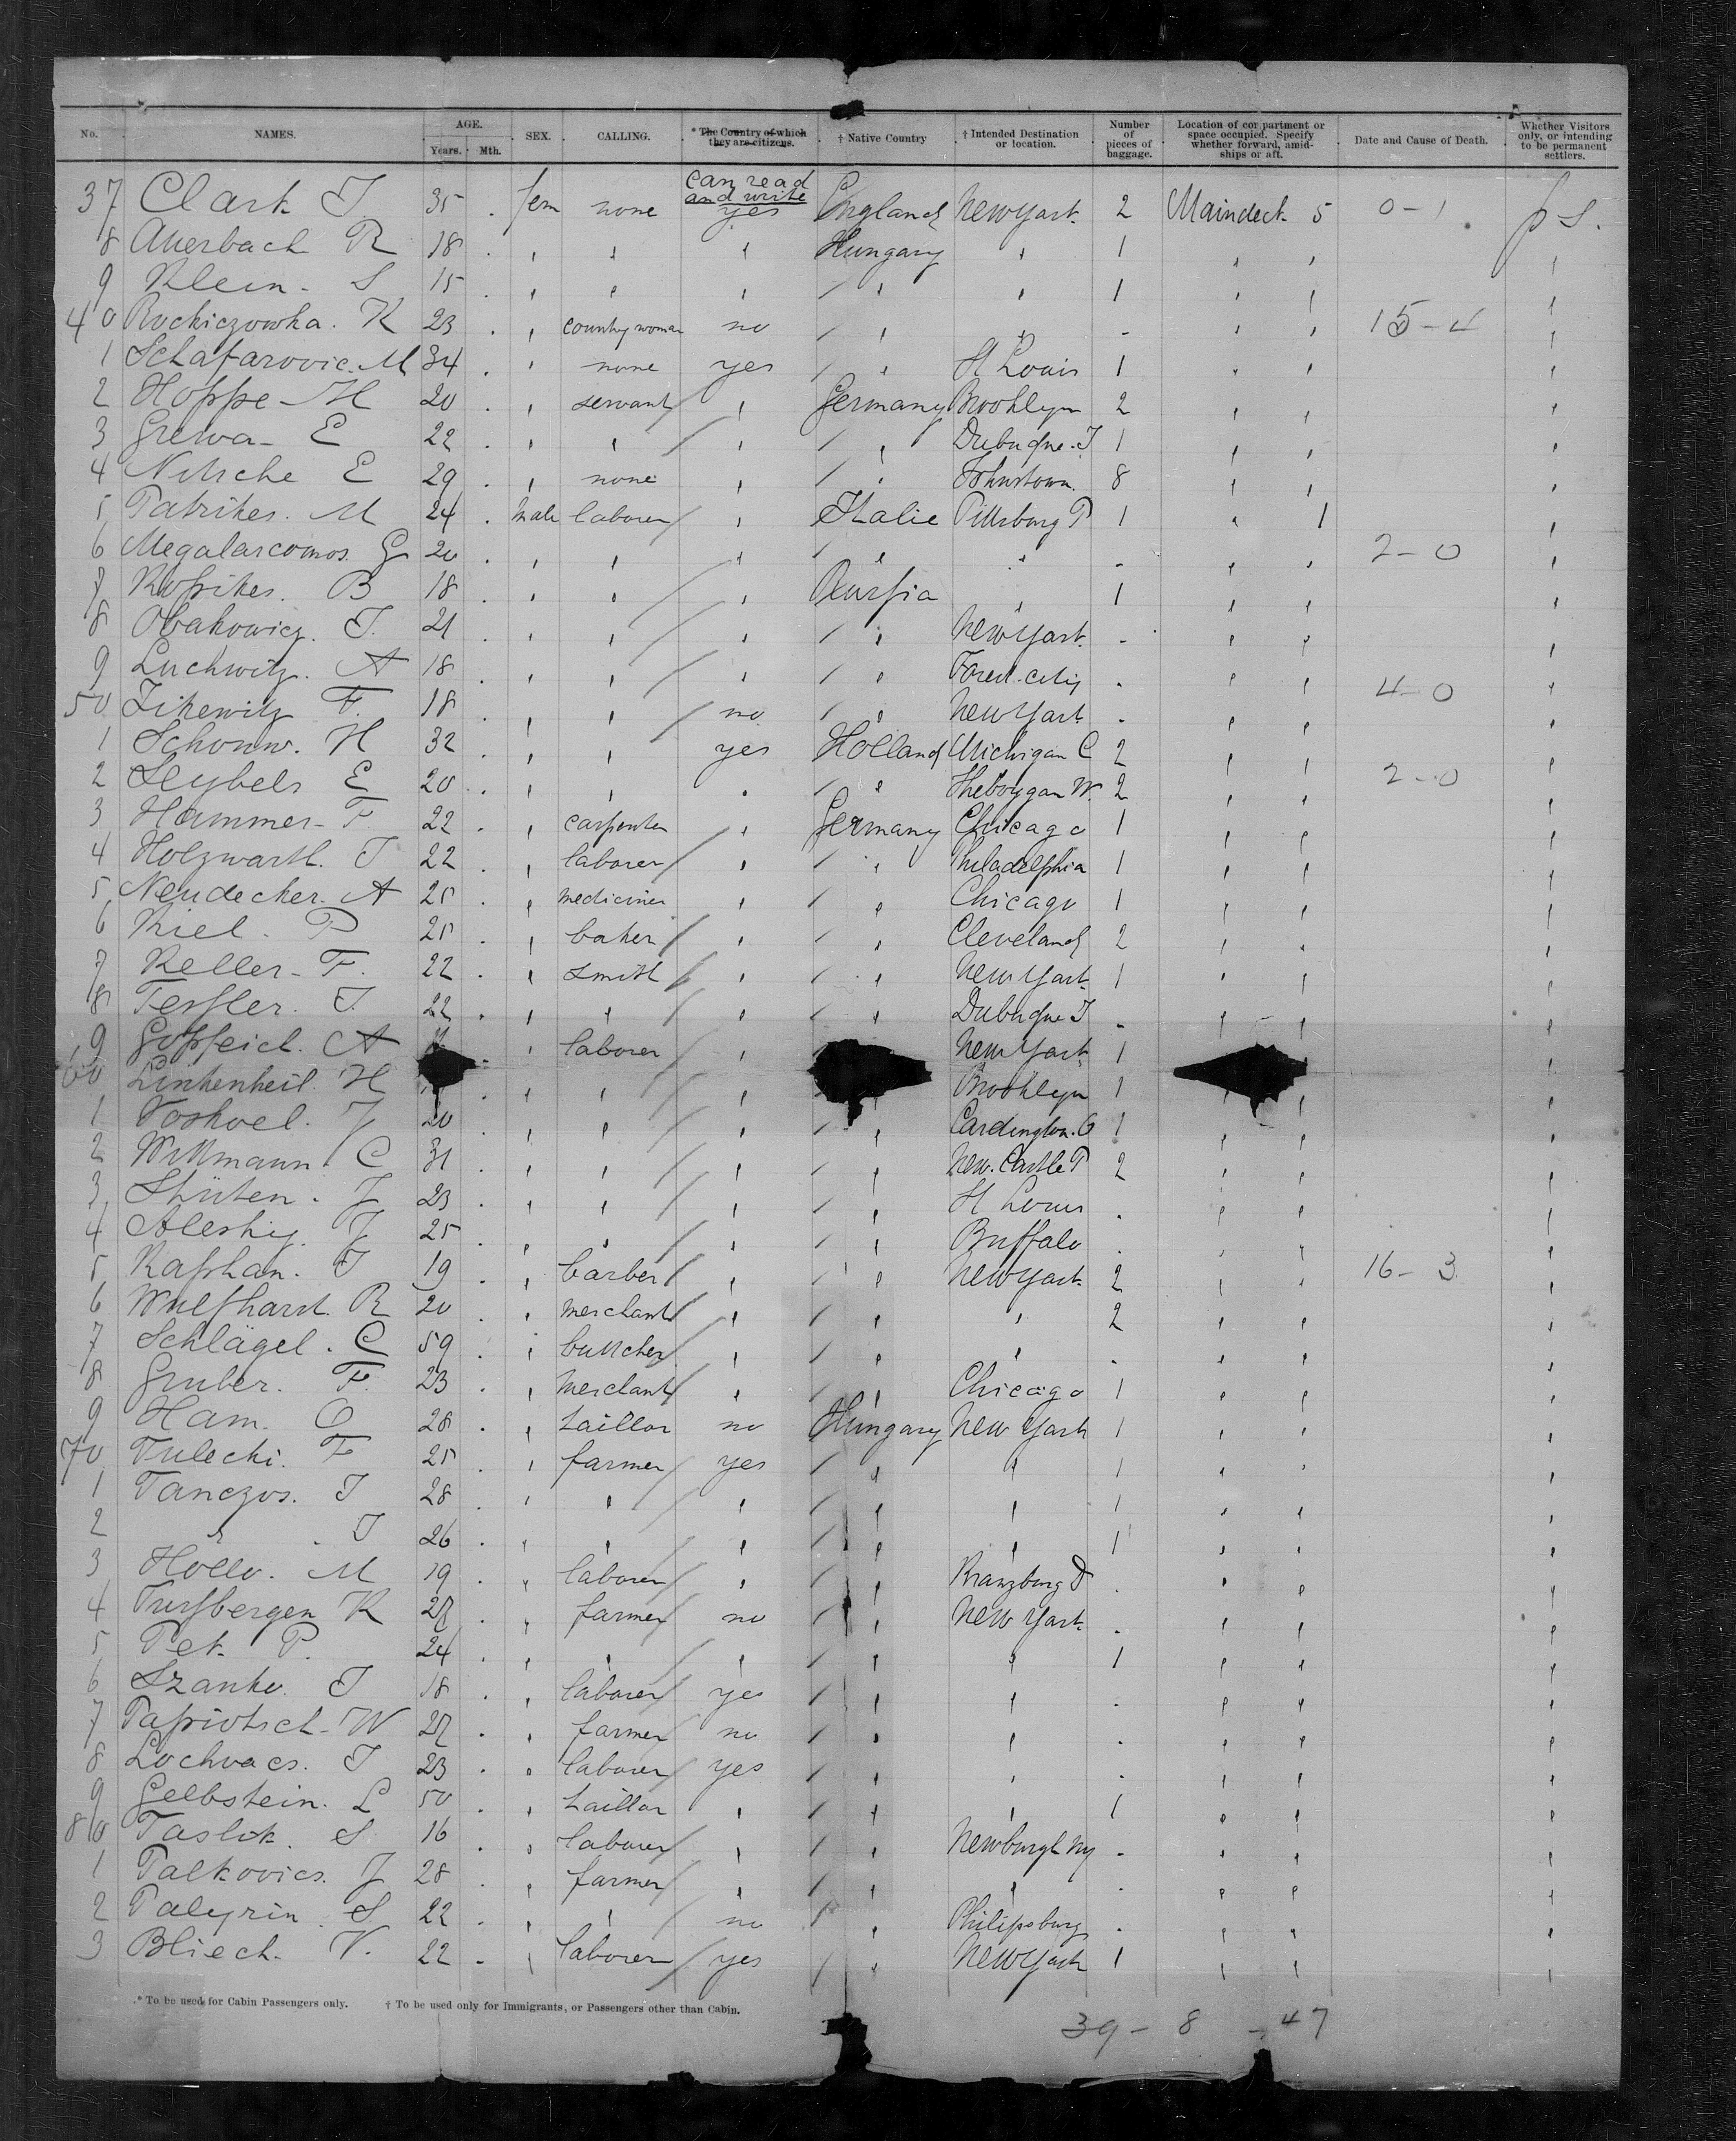 No. NAMES. AGE. Years. Mth. SEX. CALLING. * The Country of which they are citizens. † Native Country † Intended Destination or location. Number of pieces of baggage. Location of compartment or space occupied. Specify whether forward, amidships or aft. Date and Cause of Death. Whether Visitors only, or intending to be permanent settlers.
can read and write
37 Clark J 35 . fem none yes England New York 2 Maindeck 5 0-1 p S.
8 Auerbach R 18 . " " " Hungary " 1 " " "
9 Klein - S 15 . " " " / " " 1 " " "
40 Rockiczowka. K 23 . " country woman no / " " - " " 15-4 "
1 Schafarovic. M 34 . " none yes / " St Louis 1 " " "
2 Hoppe - H 20 . " servant / " Germany Brooklyn 2 " " "
3 Grewa - E 22 . " " / " / " Dubuque. I 1 " " "
4 Nitsche E 29 . " none " / " Johnstown. 8 " " "
5 Patrikes. M 24 . male laborer / " Italie Pittsburg P 1 " " "
6 Megalarcomos. G 20 . " " " / " " - " " 2-0 "
7 Kossikes. B 18 . " " / " Russia " 1 " " "
8 Obakowicz. J. 21 . " " / " / " New York. - " " "
9 Luchwitz. A 18 . " " / " / " Forest city . " " "
50 Zikewitz F. 18 . " " / no / " New York . " " 4-0 "
1 Schonw. H 32 . " " yes Holland Michigan C 2 " " "
2 Seybels E 20 . " " " / " Sheboygan W. 2 " " 2-0 "
3 Hammer - F 22 . " carpenter / " Germany Chicago 1 " " "
4 Holzwarth. J 22 . " laborer / " / " Philadelphia 1 " " "
5 Neudecker. A 25 . " mediciner " / " Chicago 1 " " "
6 Kiel. P 25 . " baker / " / " Cleveland 2 " " "
7 Keller - F. 22 . " smith / " / " New York 1 " " "
8 Tessler. J. 22 . " " / " / " Dubuque I - " " "
9 A . " laborer / " New York 1 "
60 Linkenheil. H . " " / " " Brooklyn 1 " " "
1 Voskoel. J 20 . " " / " / " Cardington. O 1 " " "
2 Wittmann. C 31 . " " / " / " New. Castle P 2 " " "
3 Stüten. J 23 . " " / " / " St Louis . " " "
4 Aleskig. J 25 . " " / " / " Buffalo . " " "
5 Kaphan. J 19 . " barber / " / " New York 2 " " 16-3 "
6 Wulfharst. R 20 . " merchant / " / " " 2 " " "
7 Schlägel. C 59 . " buttcher / " / " " . " " "
8 Gruber. F. 23 . " merchant / " / " Chicago 1 " " "
9 Ham. O 28 . " taillor no Hungary New York 1 " " "
70 Tulecki. F 25 . " farmer / yes / " " 1 " " "
1 Tanczos. J 28 . " " / " / " " 1 " " "
2 " . J 26 . " " / " / " " 1 " " "
3 Hollo. M 19 . " laborer / " / " Kranzburg D . " " "
4 Trussbergen K 27 . " farmer / no / " New York . " " "
5 Pek P. 24 . " " / " / " " 1 " " "
6 Szanko. J 18 . " laborer / yes / " " . " " "
7 Papiotsch - W 27 . " farmer / no / " " . " " "
8 Lochvacs. J 23 . " laborer / yes / " " . " " "
9 Gelbstein. L 50 . " taillor " / " " 1 " " "
80 Taslik. S 16 . " laborer / " / " Newburgh NY - " " "
1 Palkovics. J 28 . " farmer / " / " " . " " "
2 Palyrin. S 22 . " " / no / " Philipsburg . " " "
3 Bliech - V. 22 . " laborer / yes / " New York 1 " " "
* To be used for Cabin Passengers only. † To be used only for Immigrants, or Passengers other than Cabin.
39 - 8 - 47